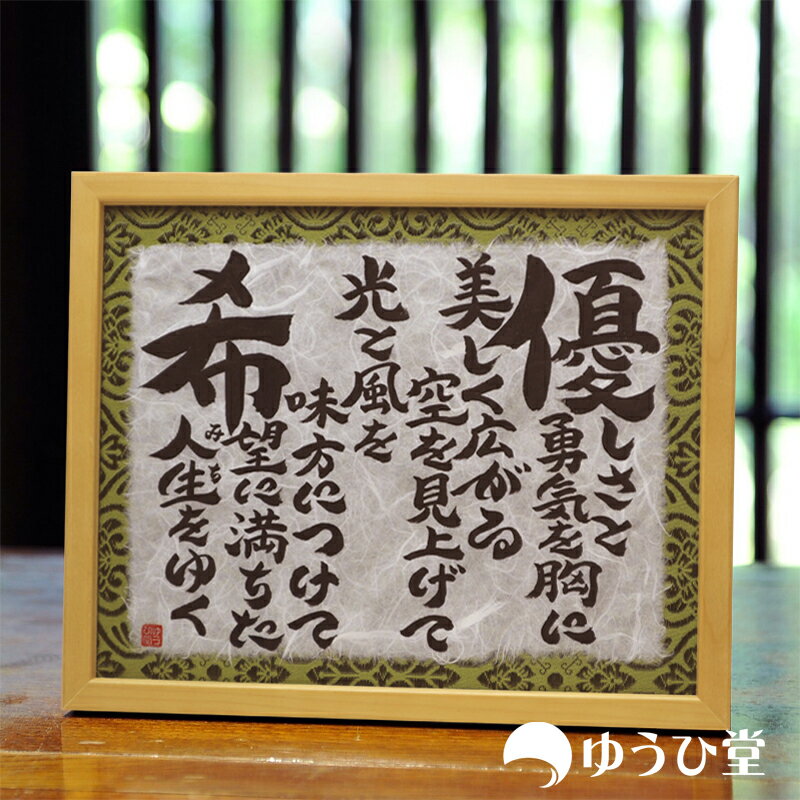 優しさと
勇気を胸に
美しく広がる
空を見上げて
光と風を
味方につけて
希望に満ちた
人生をゆく
みち
ゆうひ堂